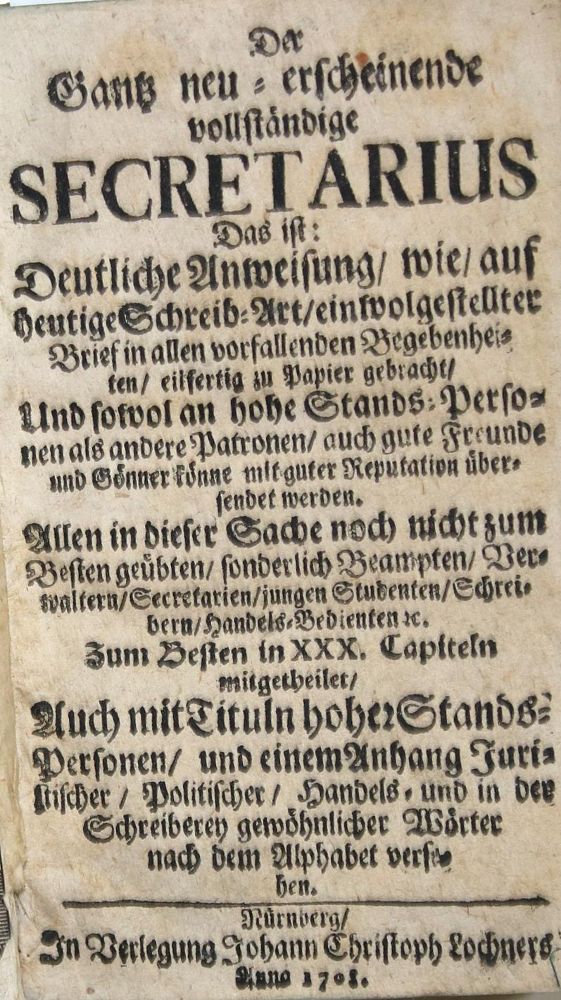 Der
Gantz neu-erscheinende
vollständige
SECRETARIUS
Das ist:
Deutliche Anweisung/ wie/ auf
heutige Schreib-Art/ ein wolgestellter
Brief in allen vorfallenden Begebenhei-
ten/ eilfertig zu Papier gebracht/
Und sowol an hohe Stands-Perso-
nen als andere Patronen/ auch gute Freunde
und Gönner könne mit guter Reputation über-
sendet werden.
Allen in dieser Sache noch nicht zum
Besten geübten/ sonderlich Beampten/ Ver-
waltern/ Secretarien/ jungen Studenten/ Schrei-
bern/ Handels-Bedienten ꝛc.
Zum Besten in XXX. Capiteln
mitgetheilet/
Auch mit Tituln hoher Stands-
Personen/ und einem Anhang Juri-
stischer/ Politischer/ Handels- und in der
Schreiberey gewöhnlicher Wörter
nach dem Alphabet verse-
hen.
Nürnberg/
In Verlegung Johann Christoph Lochners
Anno 1708.